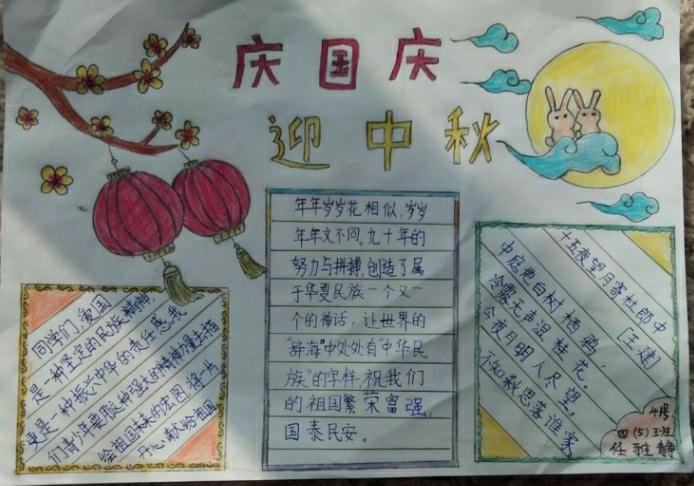 庆国庆
迎中秋
同学们,爱国
是一种坚定的民族精神,
更是一种振兴中华的责任感,我
们青少年要用这种强大的精神力量去描
绘祖国未来的宏图,将一片
丹心献给祖国
年年岁岁花相似,岁岁
年年文不同。九十年的
努力与拼搏,创造了属
于华夏民族一个又一
个的神话,让世界的
“辞海”中处处有“中华民
族”的字样,祝我们
的祖国繁荣富强,
国泰民安。
十五夜望月寄杜郎中
[王建]
中庭地白树栖鸦,
冷露无声湿桂花。
今夜月明人尽望,
不知秋思落谁家
4号
四(5)班
任雅静